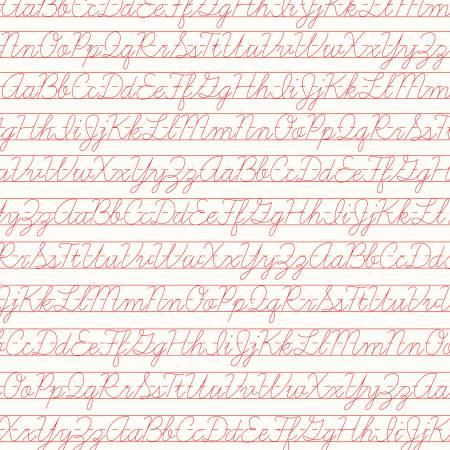 AaBbCcDdEeFfGgHhIiJjKkLlMm
NnOoPpQqRrSsTtUuVvWwXxYyZz
AaBbCcDdEeFfGgHhIiJjKkLlMm
gHhIiJjKkLlMmNnOoPpQqRrSsT
uVvWwXxYyZzAaBbCcDdEeFfGgH
YyZzAaBbCcDdEeFfGgHhIiJjKkLl
RrSsTtUuVvWwXxYyZzAaBbCcDdC
JjKkLlMmNnOoPpQqRrSsTtUuVv
CcDdEeFfGgHhIiJjKkLlMmNnOo
OoPpQqRrSsTtUuVvWwXxYyZzAa
XxYyZzAaBbCcDdEeFfGgHhIiJjKk